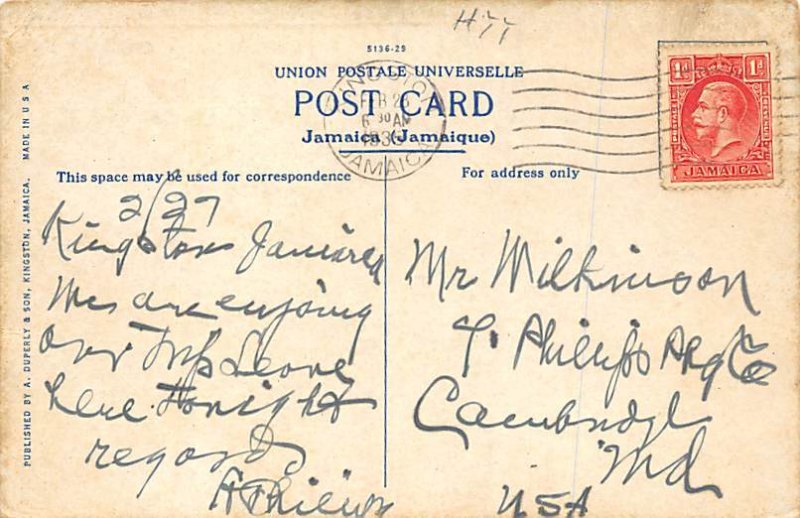 H77
5136-29
UNION POSTALE UNIVERSELLE
POST CARD
Jamaica (Jamaique)
KINGSTON
FEB 28
6 30 AM
JAMAICA
1d 1d
POSTAGE
JAMAICA
This space may be used for correspondence
For address only
PUBLISHED BY A. DUPERLY & SON, KINGSTON, JAMAICA. MADE IN U S A
2/27
Kingston Jamaica
We are enjoying
our Trip Leave
here tonight
regards
Mr Wilkinson
Phillips Pkg Co
Cambridge
Md
USA